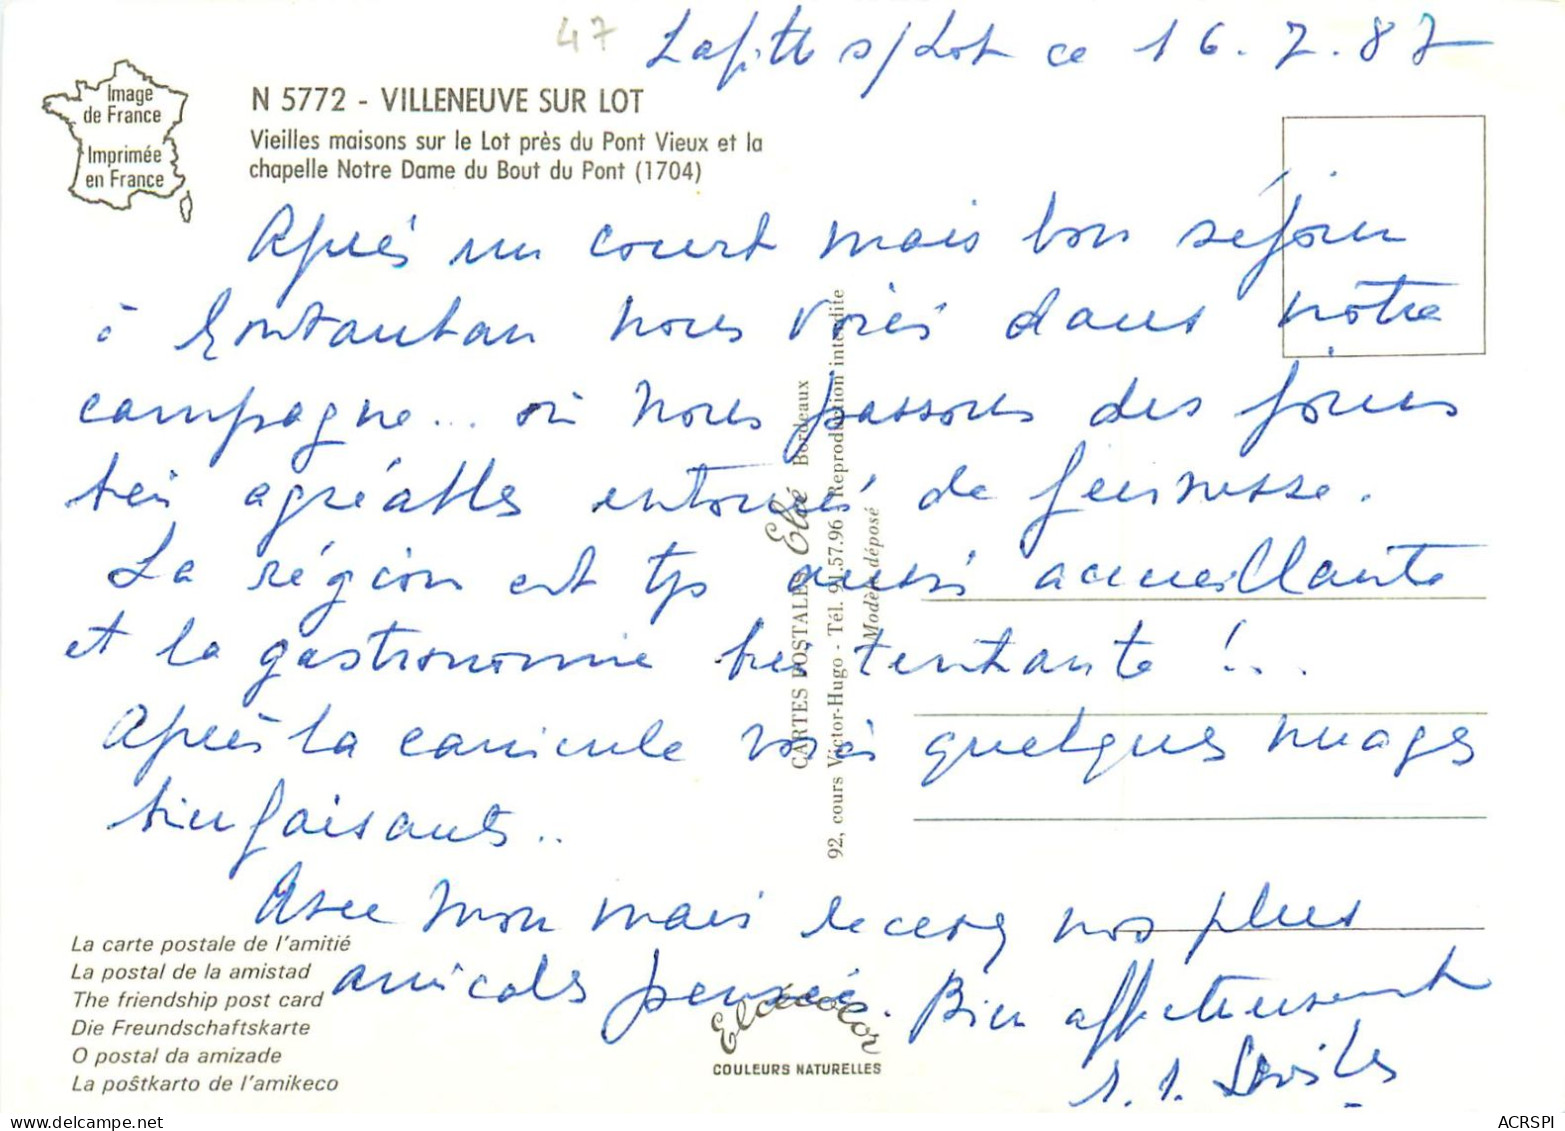 47
Lafitte s/Lot ce 16.7.87
Image
de France
Imprimée
en France
N 5772 - VILLENEUVE SUR LOT
Vieilles maisons sur le Lot près du Pont Vieux et la
chapelle Notre Dame du Bout du Pont (1704)
Après un court mais bon séjour
à Montauban nous voici dans notre
campagne... où nous passons des jours
très agréables entourés de jeunesse.
La région est tjs aussi accueillante
et la gastronomie très tentante !..
Après la canicule voici quelques nuages
bienfaisants..
Avec mon mari recevez nos plus
amicales pensées. Bien affectueusement
CARTES POSTALES Elcé Bordeaux
92, cours Victor-Hugo - Tél. 91.57.96 - Reproduction interdite
Modèle déposé
La carte postale de l'amitié
La postal de la amistad
The friendship post card
Die Freundschaftskarte
O postal da amizade
La poŝtkarto de l'amikeco
Elcécolor
COULEURS NATURELLES
delcampe.net
ACRSPI